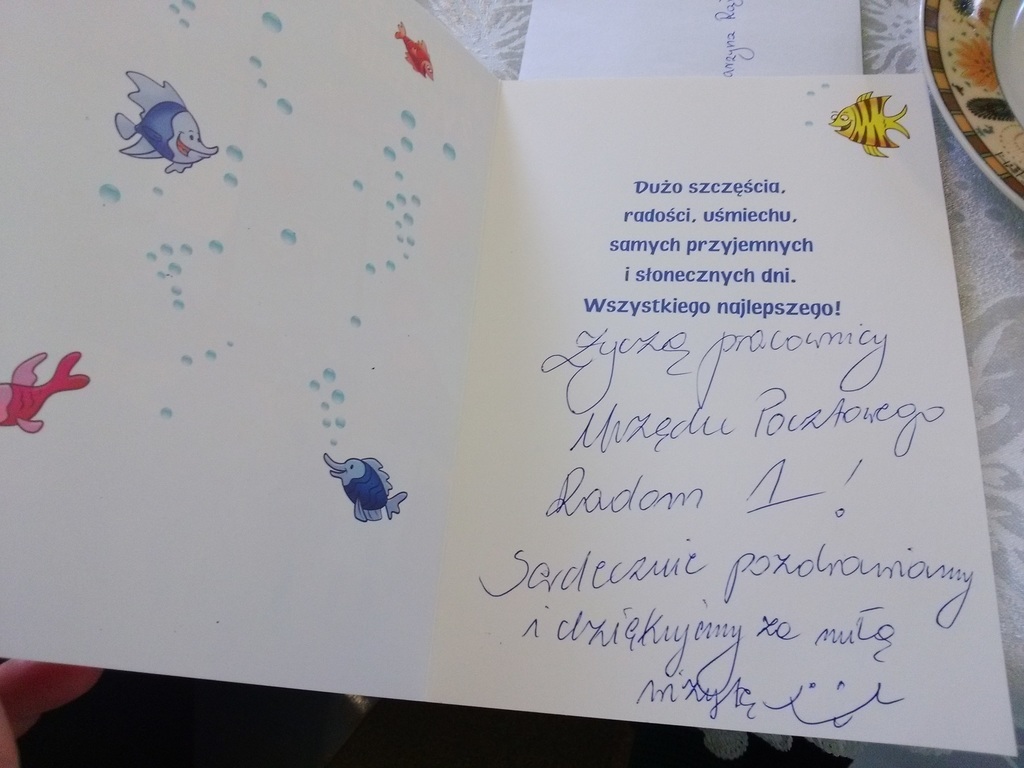 Dużo szczęścia,
radości, uśmiechu,
samych przyjemnych
i słonecznych dni.
Wszystkiego najlepszego!
Życzą pracownicy
Urzędu Pocztowego
Radom 1!
Serdecznie pozdrawiamy
i dziękujemy za miłą
wizytę